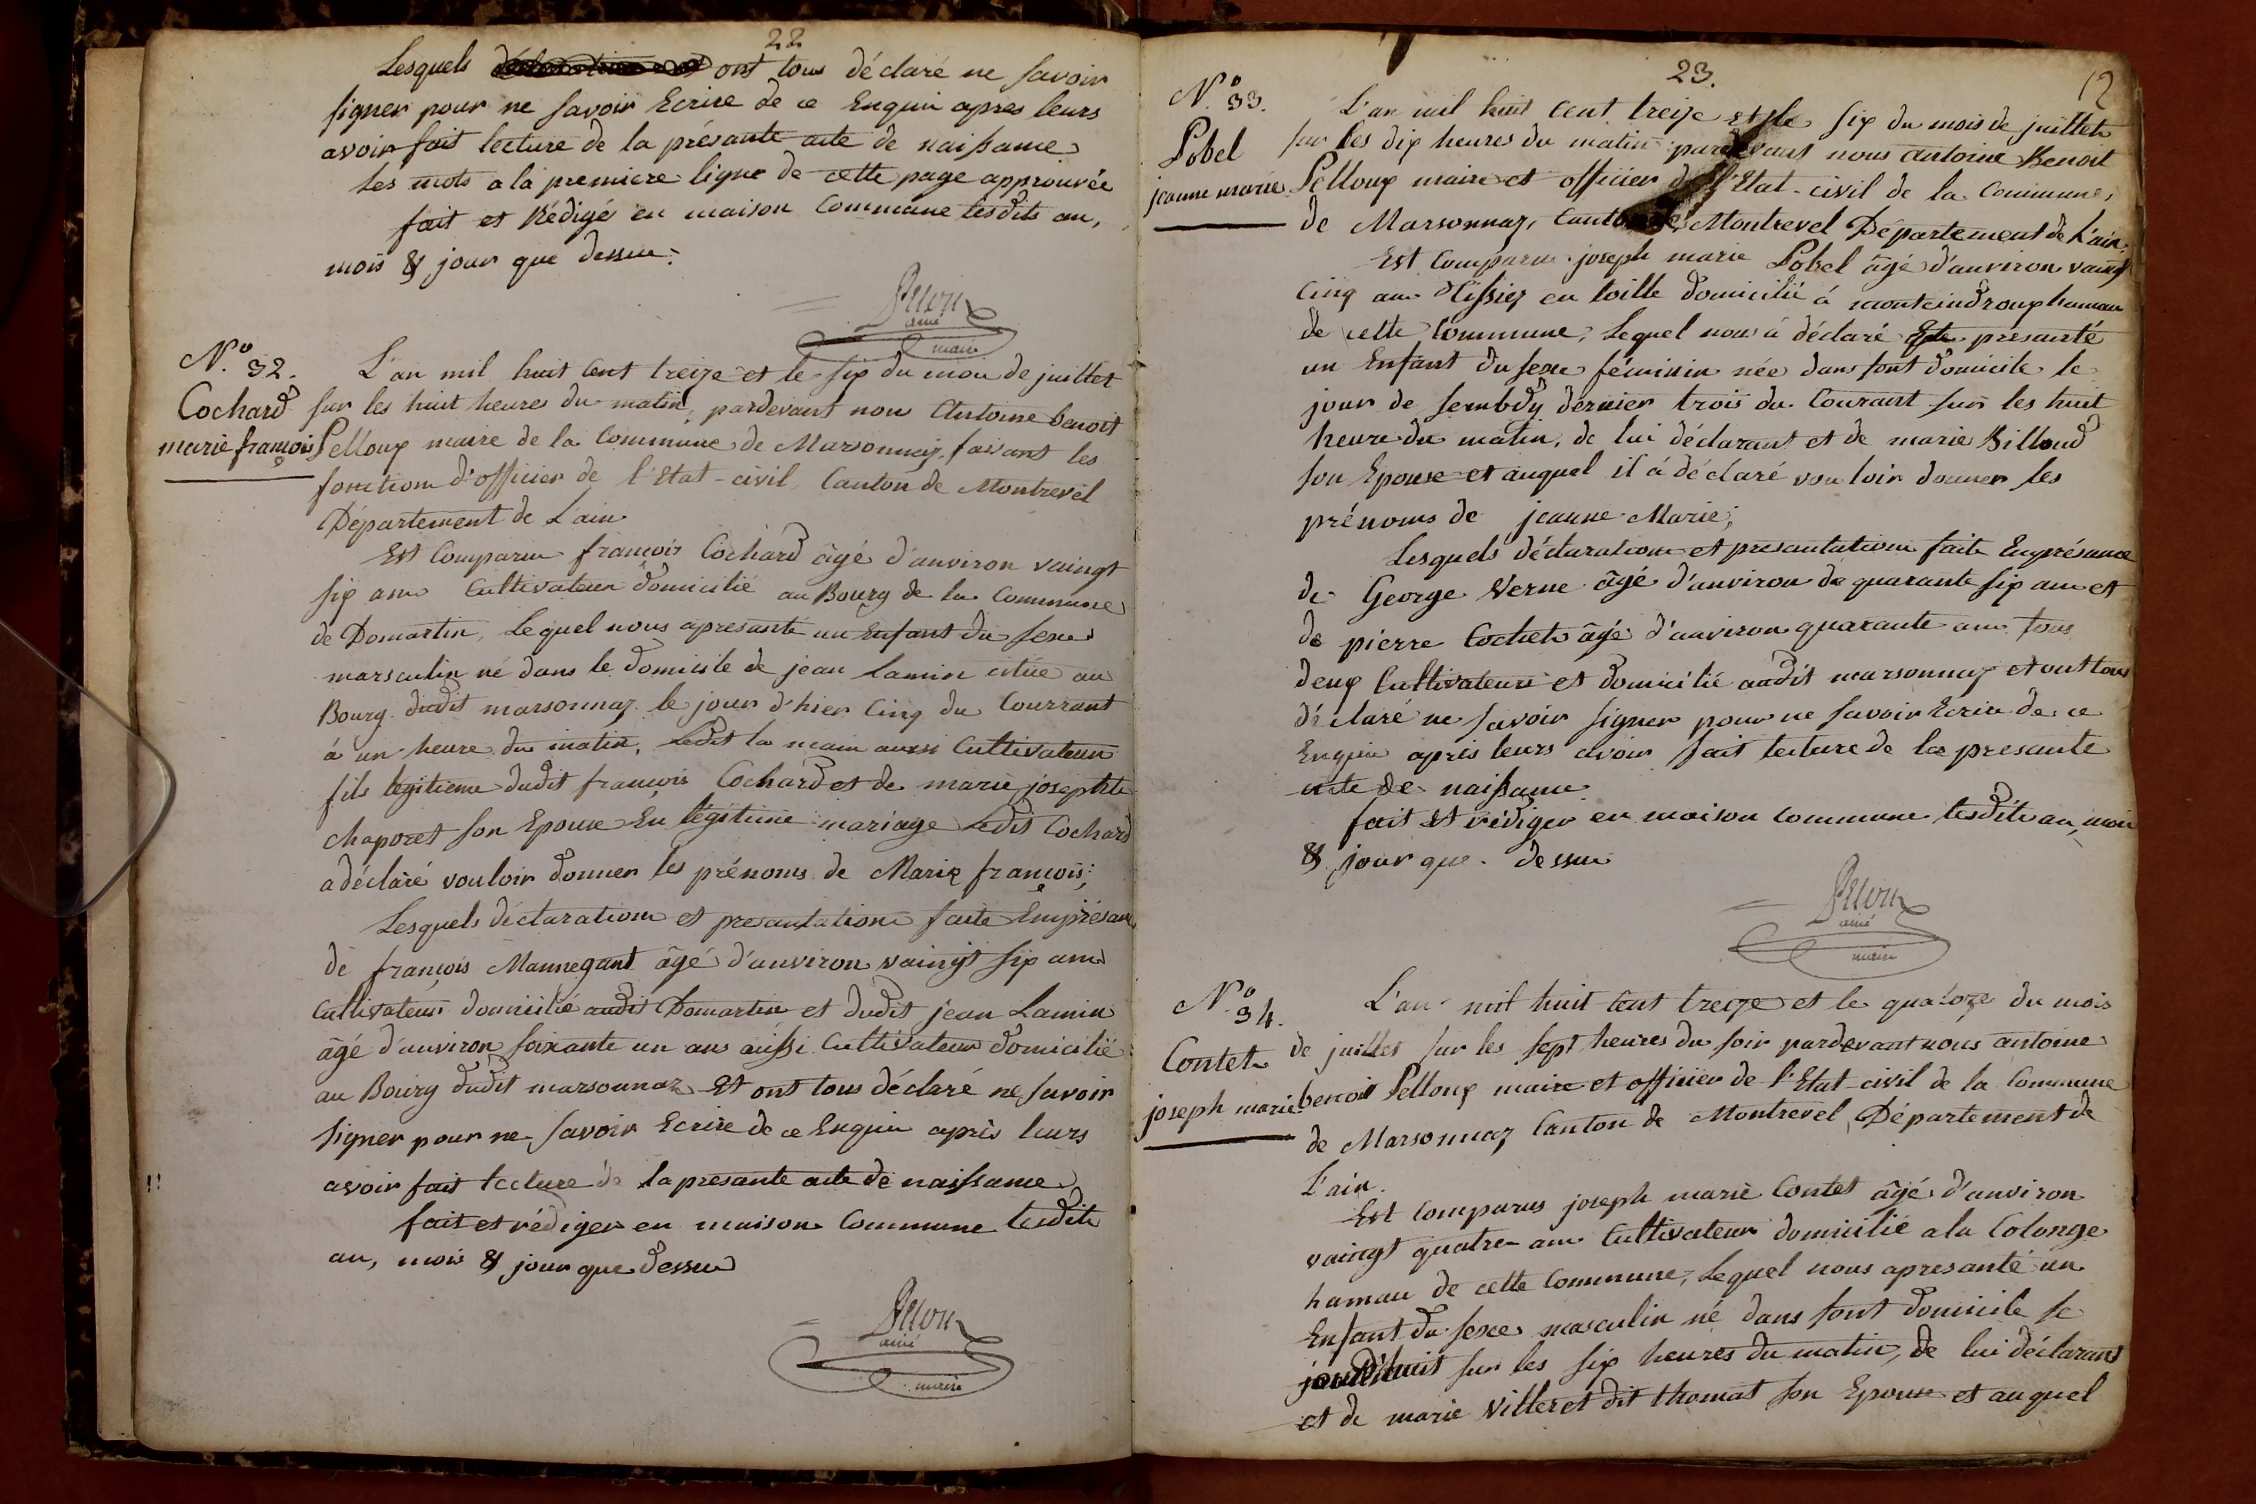 22
Lesquels ont tous déclaré ne savoir
signer pour ne savoir Ecrire de ce Enquis apres leurs
avoir fait lecture de la présante acte de naissance
Les mots a la premiere ligne de cette page approuvée
fait et Rédigé en maison Commune lesdits an,
mois & jour que dessu.
Pelloux
ainé
maire
N.º 32.
Cochard
marie françois
L'an mil huit Cent treize et le six du mois de juillet
sur les huit heures du matin, pardevant nous Antoine benoit
Pelloux maire de la Commune de Marsonnaz, faisant les
fonctions d'officier de l'Etat-civil, Canton de Montrevel
Département de L'ain
Est Comparu françois Cochard âgé d'anviron vaingt
six ans Cultivateur domicilié au Bourg de la Commune
de Domartin, Lequel nous apresanté un Enfant du sexe
marsculin né dans le domicile de jean Lamin citué au
Bourg dudit marsonnaz le jour d'hier Cinq du Courrant
à un heure du matin, Ledit la main aussi Cultivateur
fils legitieme dudit françois Cochard et de marie josephte
Chaporet son Epouse En légitime mariage Ledit Cochard
a déclaré vouloir donner les prénoms de Marie françois;
Lesquels déclarations et presantations faite Enprésance
de françois Mannegant âgé d'anviron vaingt six ans
Cultivateur domicilié audit Domartin et dudit jean Lamin
âgé d'anviron soixante un ans aussi Cultivateur domicilié
au Bourg dudit marsonnaz Et ont tous déclaré ne savoir
Signer pour ne savoir Ecrire de ce Enquis après leurs
avoir fait lecture de la presante acte de naissance
fait et rédiger en maison Commune lesdits
an, mois & jour que dessu
Pelloux
ainé
maire
23.
12
N.º 33.
Pobel
jeanne marie
L'an mil huit Cent treize et le six du mois de juillet
sur les dix heures du matin pardevant nous antoine Benoit
Pelloux maire et officier de l'Etat-civil de la Commune
de Marsonnaz, Canton de Montrevel Département de L'ain.
Est Comparu joseph marie Pobel âgé d'anviron vaingt
Cinq ans tissiez en toille domicilié à hamau
de cette Commune, Lequel nous à déclaré Et presanté
un Enfant du sexe féminin née dans sont domicile le
jour de sembdy dernier trois du Courant sur les huit
heure du matin, de lui déclarant et de marie Billoud
son Epouse et auquel il à déclaré vouloir donner les
prénoms de jeanne Marie;
Lesquels déclarations et presantations faite Enprésance
de George Verne âgé d'anviron de quarante six ans et
de pierre Cochet âgé d'anviron quarante ans tous
deux Cultivateurs et domicilié audit marsonnaz et ont tous
déclaré ne savoir signer pour ne savoir Ecrire de ce
Enquis après leurs avoir fait lecture de la presante
acte de naissance
fait et rédiger en maison Commune lesdits an, mois
& jour que dessu
Pelloux
ainé
maire
N.º 34.
Contet
joseph marie
L'an mil huit Cent treize et le quatoze du mois
de juillet sur les sept heures du soir pardevant nous antoine
benoit Pelloux maire et officier de l'Etat-civil de la Commune
de Marsonnaz Canton de Montrevel, Département de
L'ain.
Est Comparus joseph marie Contet âgé d'anviron
vaingt quatre ans Cultivateur domicilié a la Colonge
hamau de cette Commune, Lequel nous apresanté un
Enfant du sexe masculin né dans sont domicile le
jourd'huit sur les six heures du matin, de lui déclarant
et de marie Villeret dit thomas son Epouse et auquel